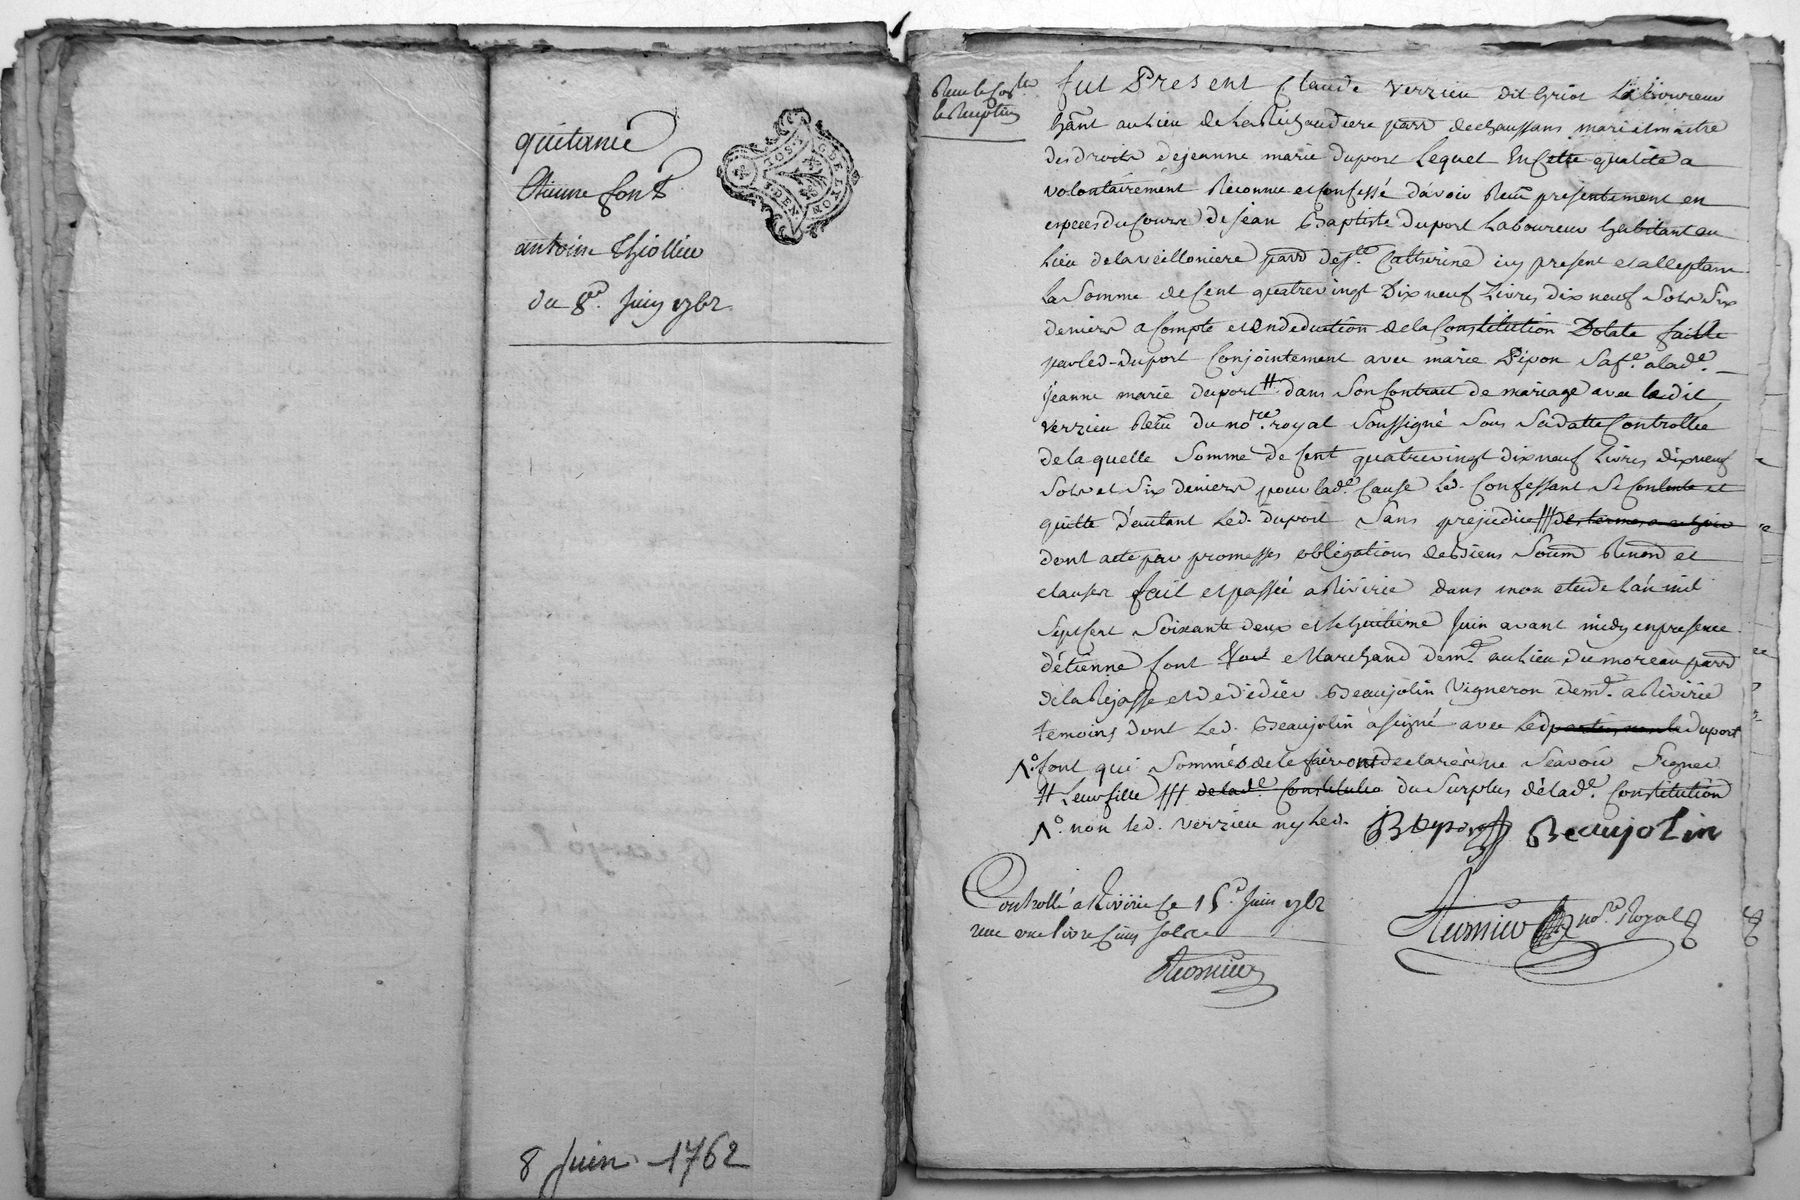 quitance
Etienne font
antoine thiollier
du 8e. Juin 1762
8 Juin 1762
fut Present Claude Verzieu dit Griot Laboureur
hānt au lieu de La Richaudiere parr dechaussans mari et maitre
des droits de jeanne marie duport Lequel En Cette qualité a
volontairement Reconnu et confessé d'avoir Reçu presentement en
especes du Cours de jean Baptiste Duport Laboureur habitant au
Lieu de la veilloniere parr de Ste. Catherine icy present et acceptant
La Somme de Cent quatrevingt Dix neuf Livres dix neuf Sols Six
deniers a Compte et en deduction de la Constitution Dotale faitte
par led. duport Conjointement avec marie Pipon Sa fe. a lad.e
jeanne marie duport # dans Son Contrait de mariage avec ledit
Verzieu Reçu du nore. royal Soussigné Sous Sa datte Controllée
de la quelle Somme de Cent quatrevingt dix neuf Livres dix neuf
Sols et Six deniers pour lad.e Cause Led. Confessant Se Contente et
quitte d'autant Led. duport Sans prejudice ### des termes a echoir
dont acte par promesses obligations de biens Soum Renon et
clauses fait et passé a Rivirie dans mon etude L'an mil
Sept Cent Soixante deux et le huitieme Juin avant midy en presence
d'etienne font Marchand demt. au Lieu du moreau parr
de la Rajasse et de didier Beaujolin Vigneron demt. a Riviriè
temoins dont Led. Beaujolin a signé avec Led duport
font qui Sommés de le faire ont declaré ne Scavoir Signer
# Leur fille ### de lad.e Constitutio du Surplus de lad.e Constitution
non led. Verzieu ny Led.
B Duport Beaujolin
Controllé a Riviriè le 15e. Juin 1762
Reçu une livre cinq sols
nore. Royal